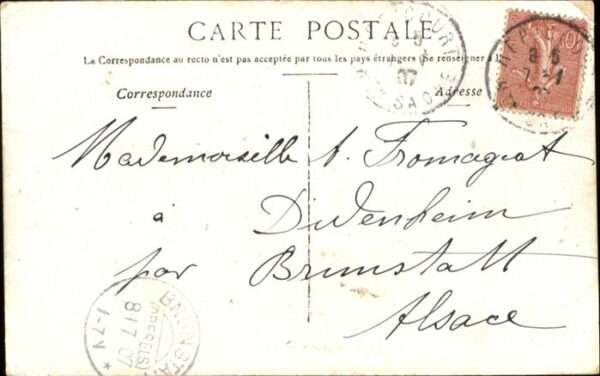 CARTE POSTALE
La Correspondance au recto n'est pas acceptée par tous les pays étrangers (Se renseigner à la
Correspondance
Adresse
Mademoiselle A. Fromageat
à Didenheim
par Brunstatt
Alsace
8 5
07
BRUNSTATT
(OBERELS)
8 1 7 07
1-7N *
10